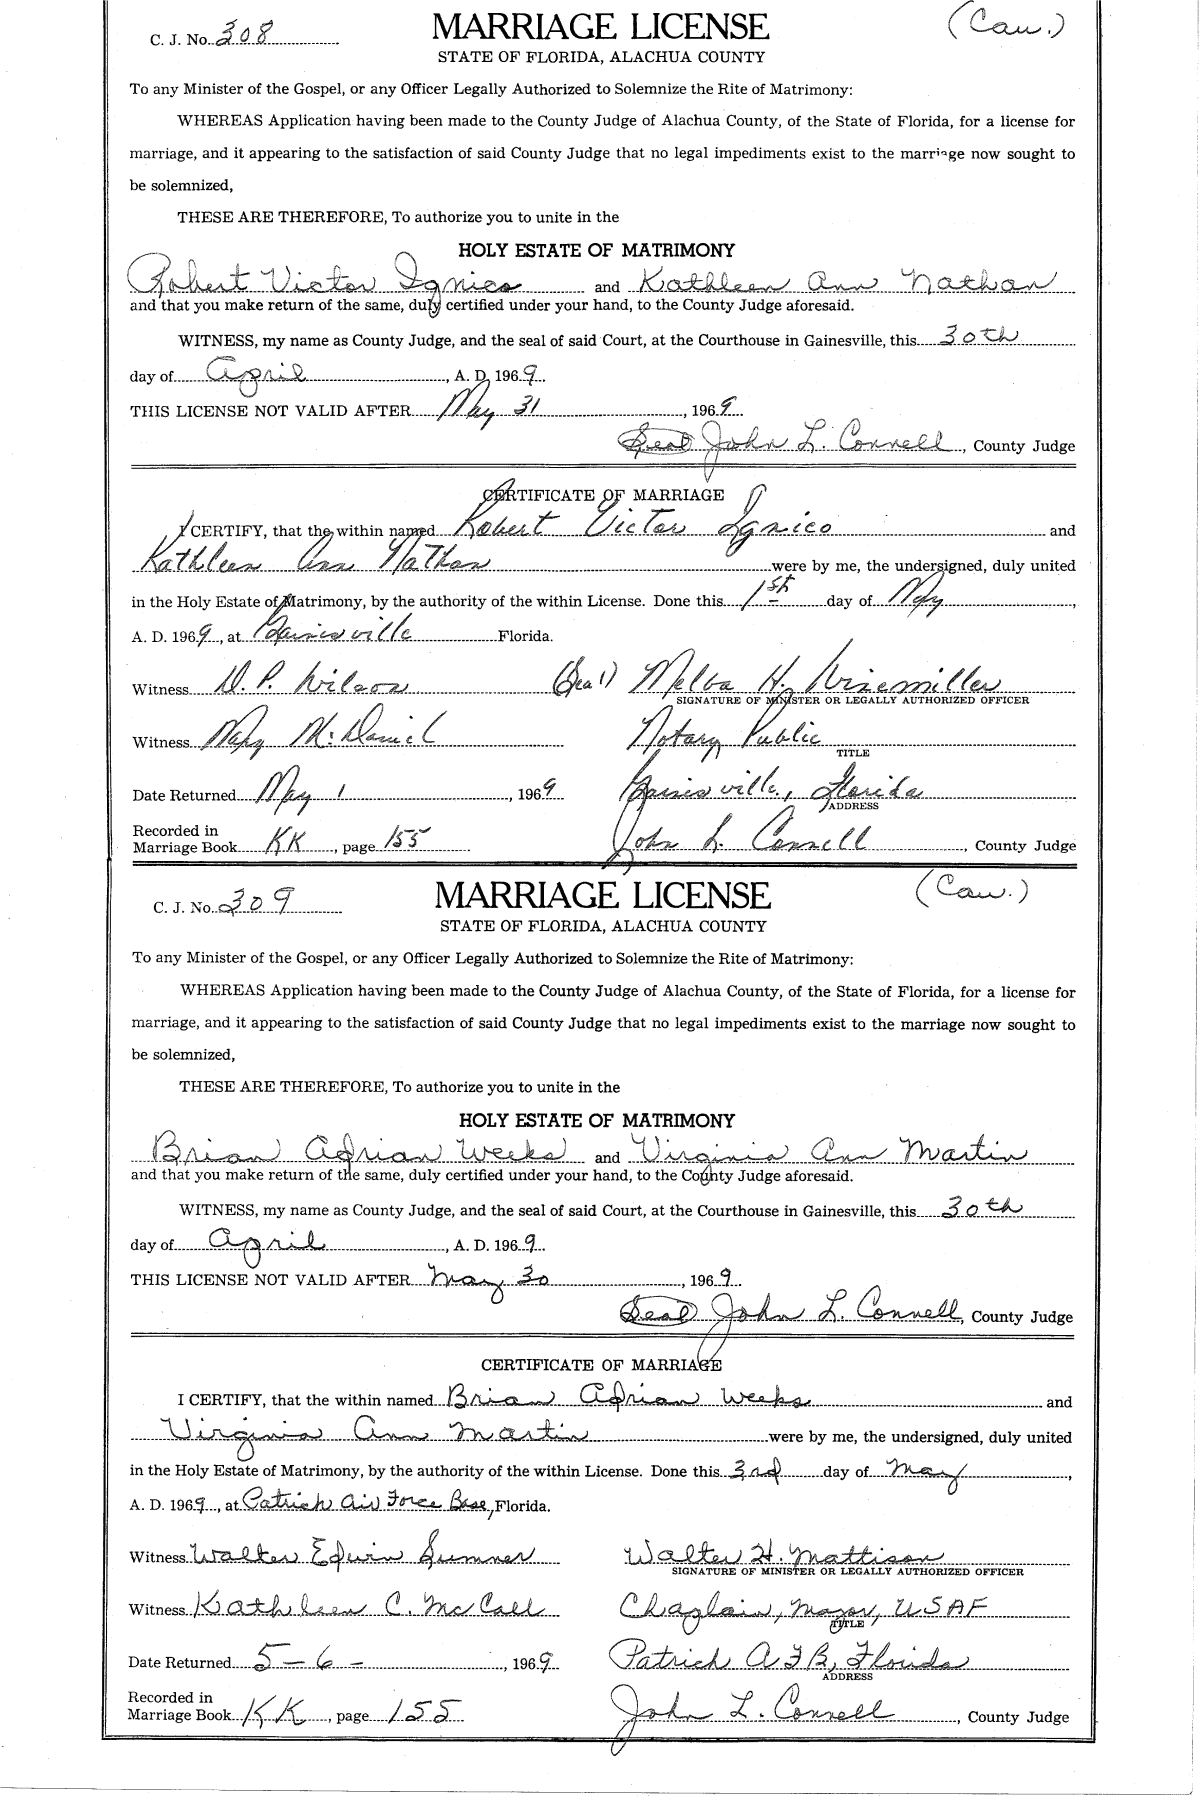 C. J. No. 308 MARRIAGE LICENSE (Cau.)
STATE OF FLORIDA, ALACHUA COUNTY
To any Minister of the Gospel, or any Officer Legally Authorized to Solemnize the Rite of Matrimony:
WHEREAS Application having been made to the County Judge of Alachua County, of the State of Florida, for a license for
marriage, and it appearing to the satisfaction of said County Judge that no legal impediments exist to the marriage now sought to
be solemnized,
THESE ARE THEREFORE, To authorize you to unite in the
HOLY ESTATE OF MATRIMONY
Robert Victor Ignico and Kathleen Ann Nathan
and that you make return of the same, duly certified under your hand, to the County Judge aforesaid.
WITNESS, my name as County Judge, and the seal of said Court, at the Courthouse in Gainesville, this 30th
day of April, A. D. 1969.
THIS LICENSE NOT VALID AFTER May 31, 1969
Seal John L. Connell, County Judge
CERTIFICATE OF MARRIAGE
I CERTIFY, that the within named Robert Victor Ignico and
Kathleen Ann Nathan were by me, the undersigned, duly united
in the Holy Estate of Matrimony, by the authority of the within License. Done this 1st day of May,
A. D. 1969, at Gainesville Florida.
Witness D. P. Wilson (Seal) Melba H. Winemiller
SIGNATURE OF MINISTER OR LEGALLY AUTHORIZED OFFICER
Witness Mary McDaniel Notary Public
TITLE
Date Returned May 1, 1969 Gainesville, Florida
ADDRESS
Recorded in
Marriage Book KK, page 155 John L. Connell, County Judge
C. J. No. 309 MARRIAGE LICENSE (Cau.)
STATE OF FLORIDA, ALACHUA COUNTY
To any Minister of the Gospel, or any Officer Legally Authorized to Solemnize the Rite of Matrimony:
WHEREAS Application having been made to the County Judge of Alachua County, of the State of Florida, for a license for
marriage, and it appearing to the satisfaction of said County Judge that no legal impediments exist to the marriage now sought to
be solemnized,
THESE ARE THEREFORE, To authorize you to unite in the
HOLY ESTATE OF MATRIMONY
Brian Adrian Weeks and Virginia Ann Martin
and that you make return of the same, duly certified under your hand, to the County Judge aforesaid.
WITNESS, my name as County Judge, and the seal of said Court, at the Courthouse in Gainesville, this 30th
day of April, A. D. 1969.
THIS LICENSE NOT VALID AFTER May 30, 1969
Seal John L. Connell, County Judge
CERTIFICATE OF MARRIAGE
I CERTIFY, that the within named Brian Adrian Weeks and
Virginia Ann Martin were by me, the undersigned, duly united
in the Holy Estate of Matrimony, by the authority of the within License. Done this 3rd day of May,
A. D. 1969, at Patrick Air Force Base, Florida.
Witness Walter Edwin Sumner Walter H. Mattison
SIGNATURE OF MINISTER OR LEGALLY AUTHORIZED OFFICER
Witness Kathleen C. McCall Chaplain, Major, USAF
TITLE
Date Returned 5-6-, 1969 Patrick AFB, Florida
ADDRESS
Recorded in
Marriage Book KK, page 155 John L. Connell, County Judge